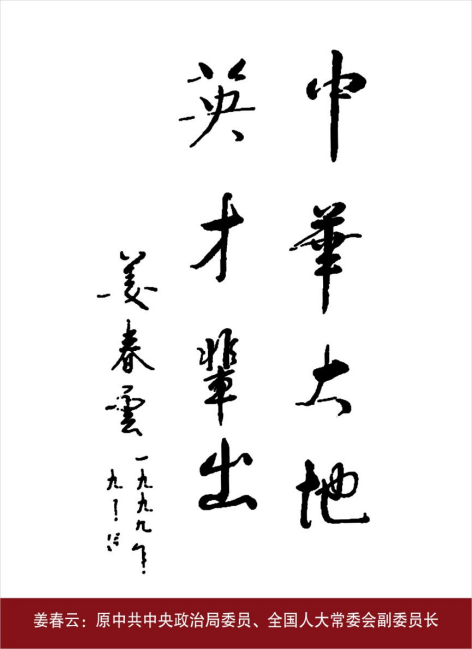 中華大地
英才輩出
姜春雲
一九九九年
九月
姜春云：原中共中央政治局委员、全国人大常委会副委员长